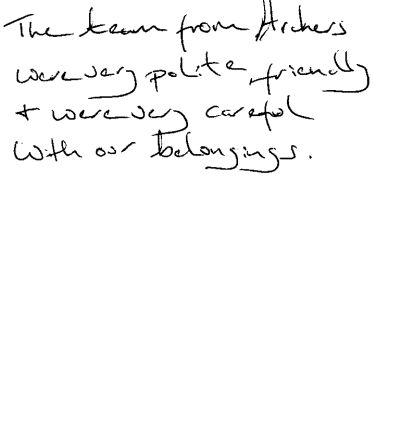 The team from Archers
were very polite, friendly
+ were very careful
with our belongings.